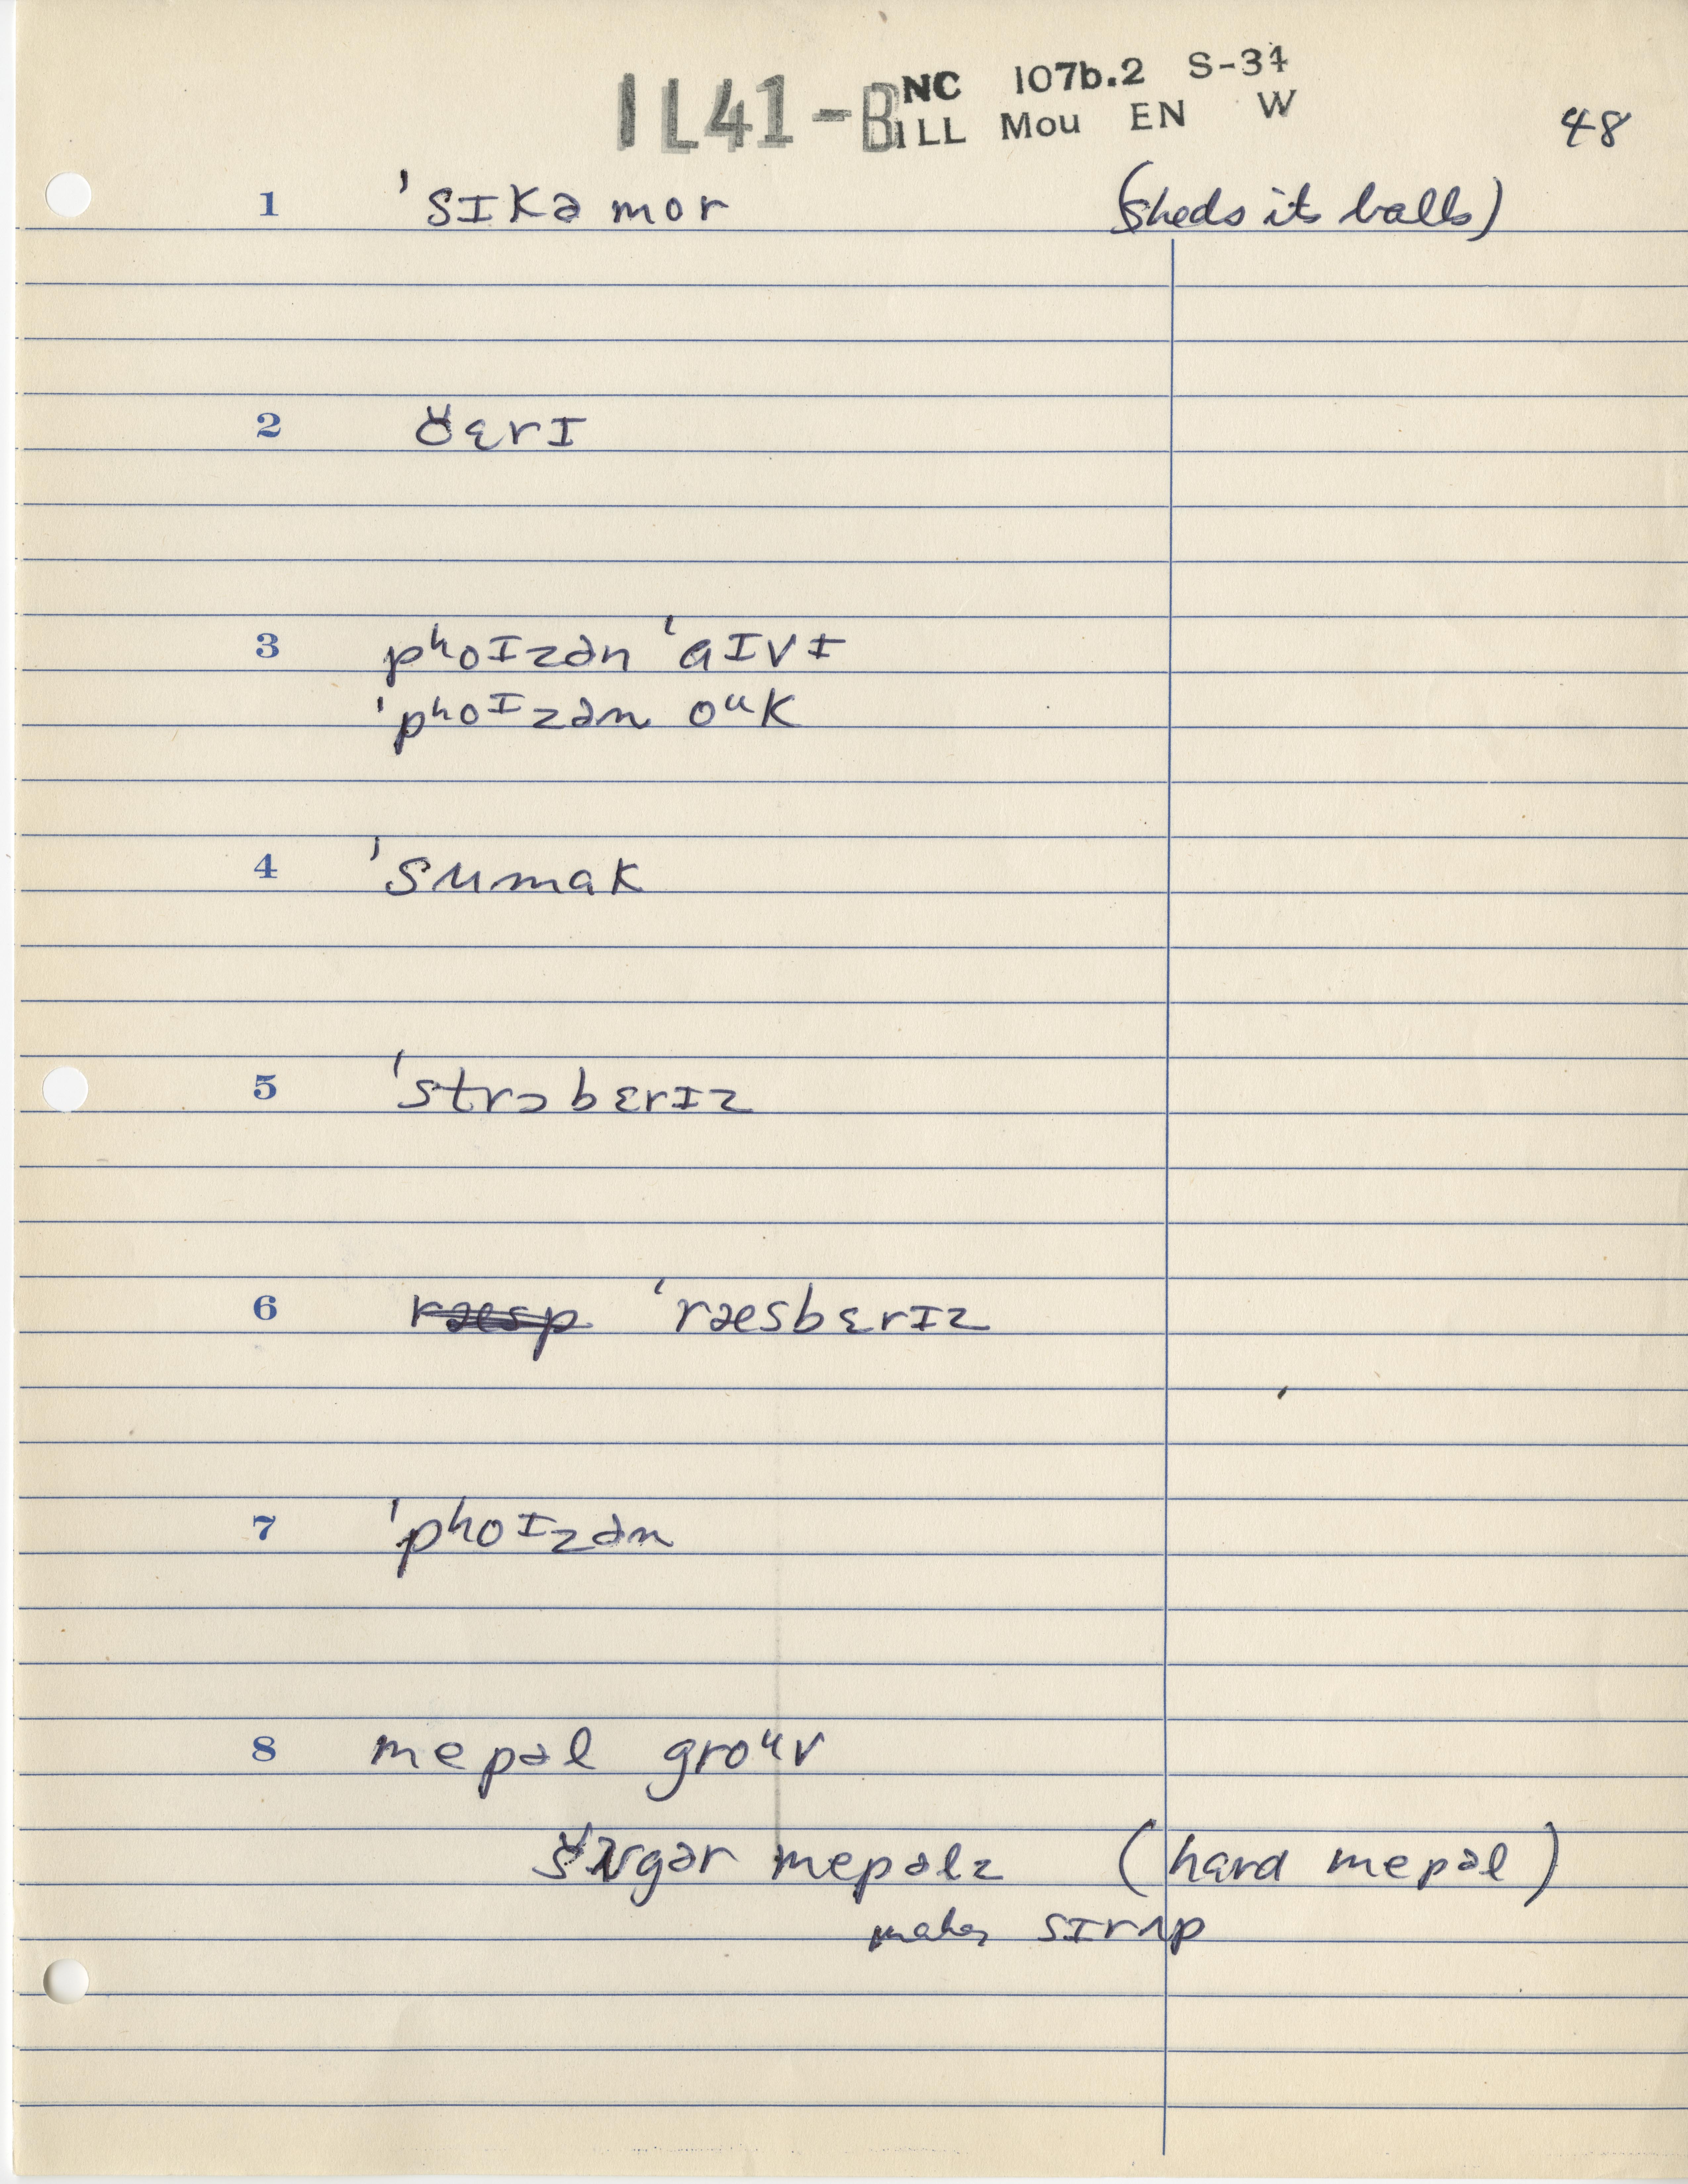 IL41-B NC 107b.2 S-34
ILL Mou EN W
48
1 ˈsɪkəmor (sheds its balls)
2
3 pʰoɪzən ˈaɪvɪ
ˈpʰoɪzən oᵘk
4 ˈsumak
5 ˈstrɔbɛrɪz
6 ræsp ˈræsbɛrɪz
7 ˈpʰoɪzən
8 mepəl groᵘv
mepəlz (hard mepəl)
makes sɪrʌp